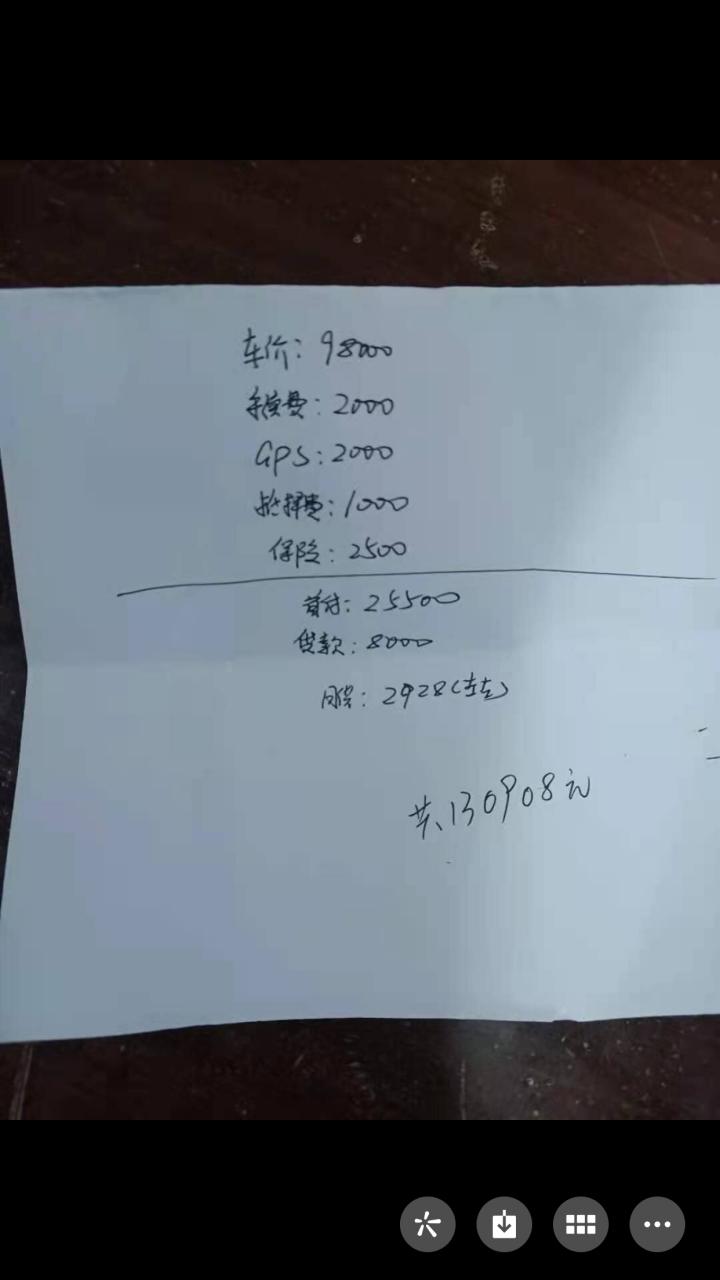 车价：98000
手续费：2000
GPS：2000
抵押费：1000
保险：2500
首付：25500
贷款：8000
月供：2928（左右）
共130908元